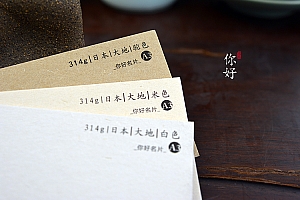 314g|日本|大地|驼色
_你好名片_ A3
314g|日本|大地|米色
_你好名片_ A3
314g|日本|大地|白色
_你好名片_ A3
你好